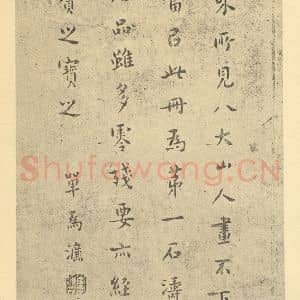 所見八大山人畫不下
當召此冊為第一石濤
品雖多零殘要亦經
寶之寶之
單為濂
Shufawang.CN